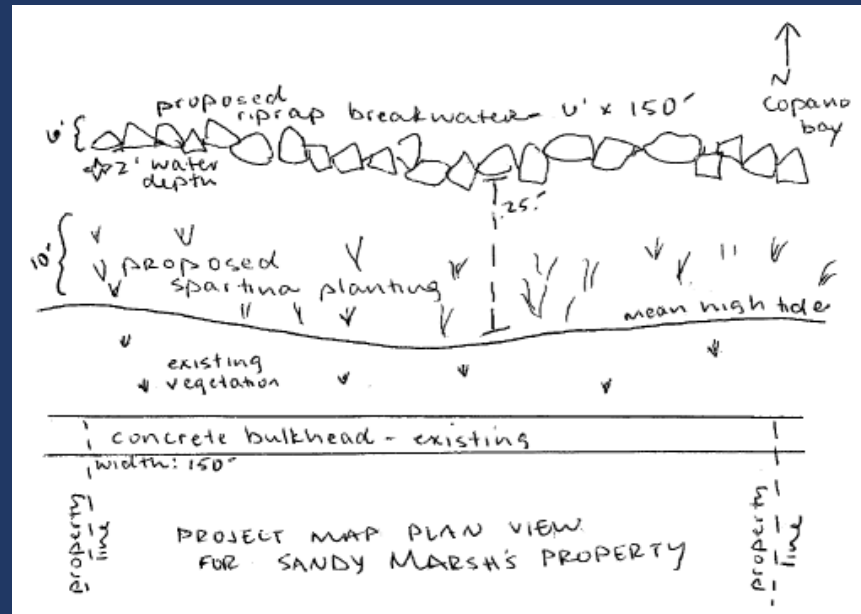 N
Copano
bay
proposed
riprap breakwater - 6' x 150'
6'
2' water
depth
25'
10'
proposed
spartina planting
mean high tide
existing
vegetation
concrete bulkhead - existing
width: 150'
property
line
PROJECT MAP PLAN VIEW
FOR SANDY MARSH'S PROPERTY
property
line